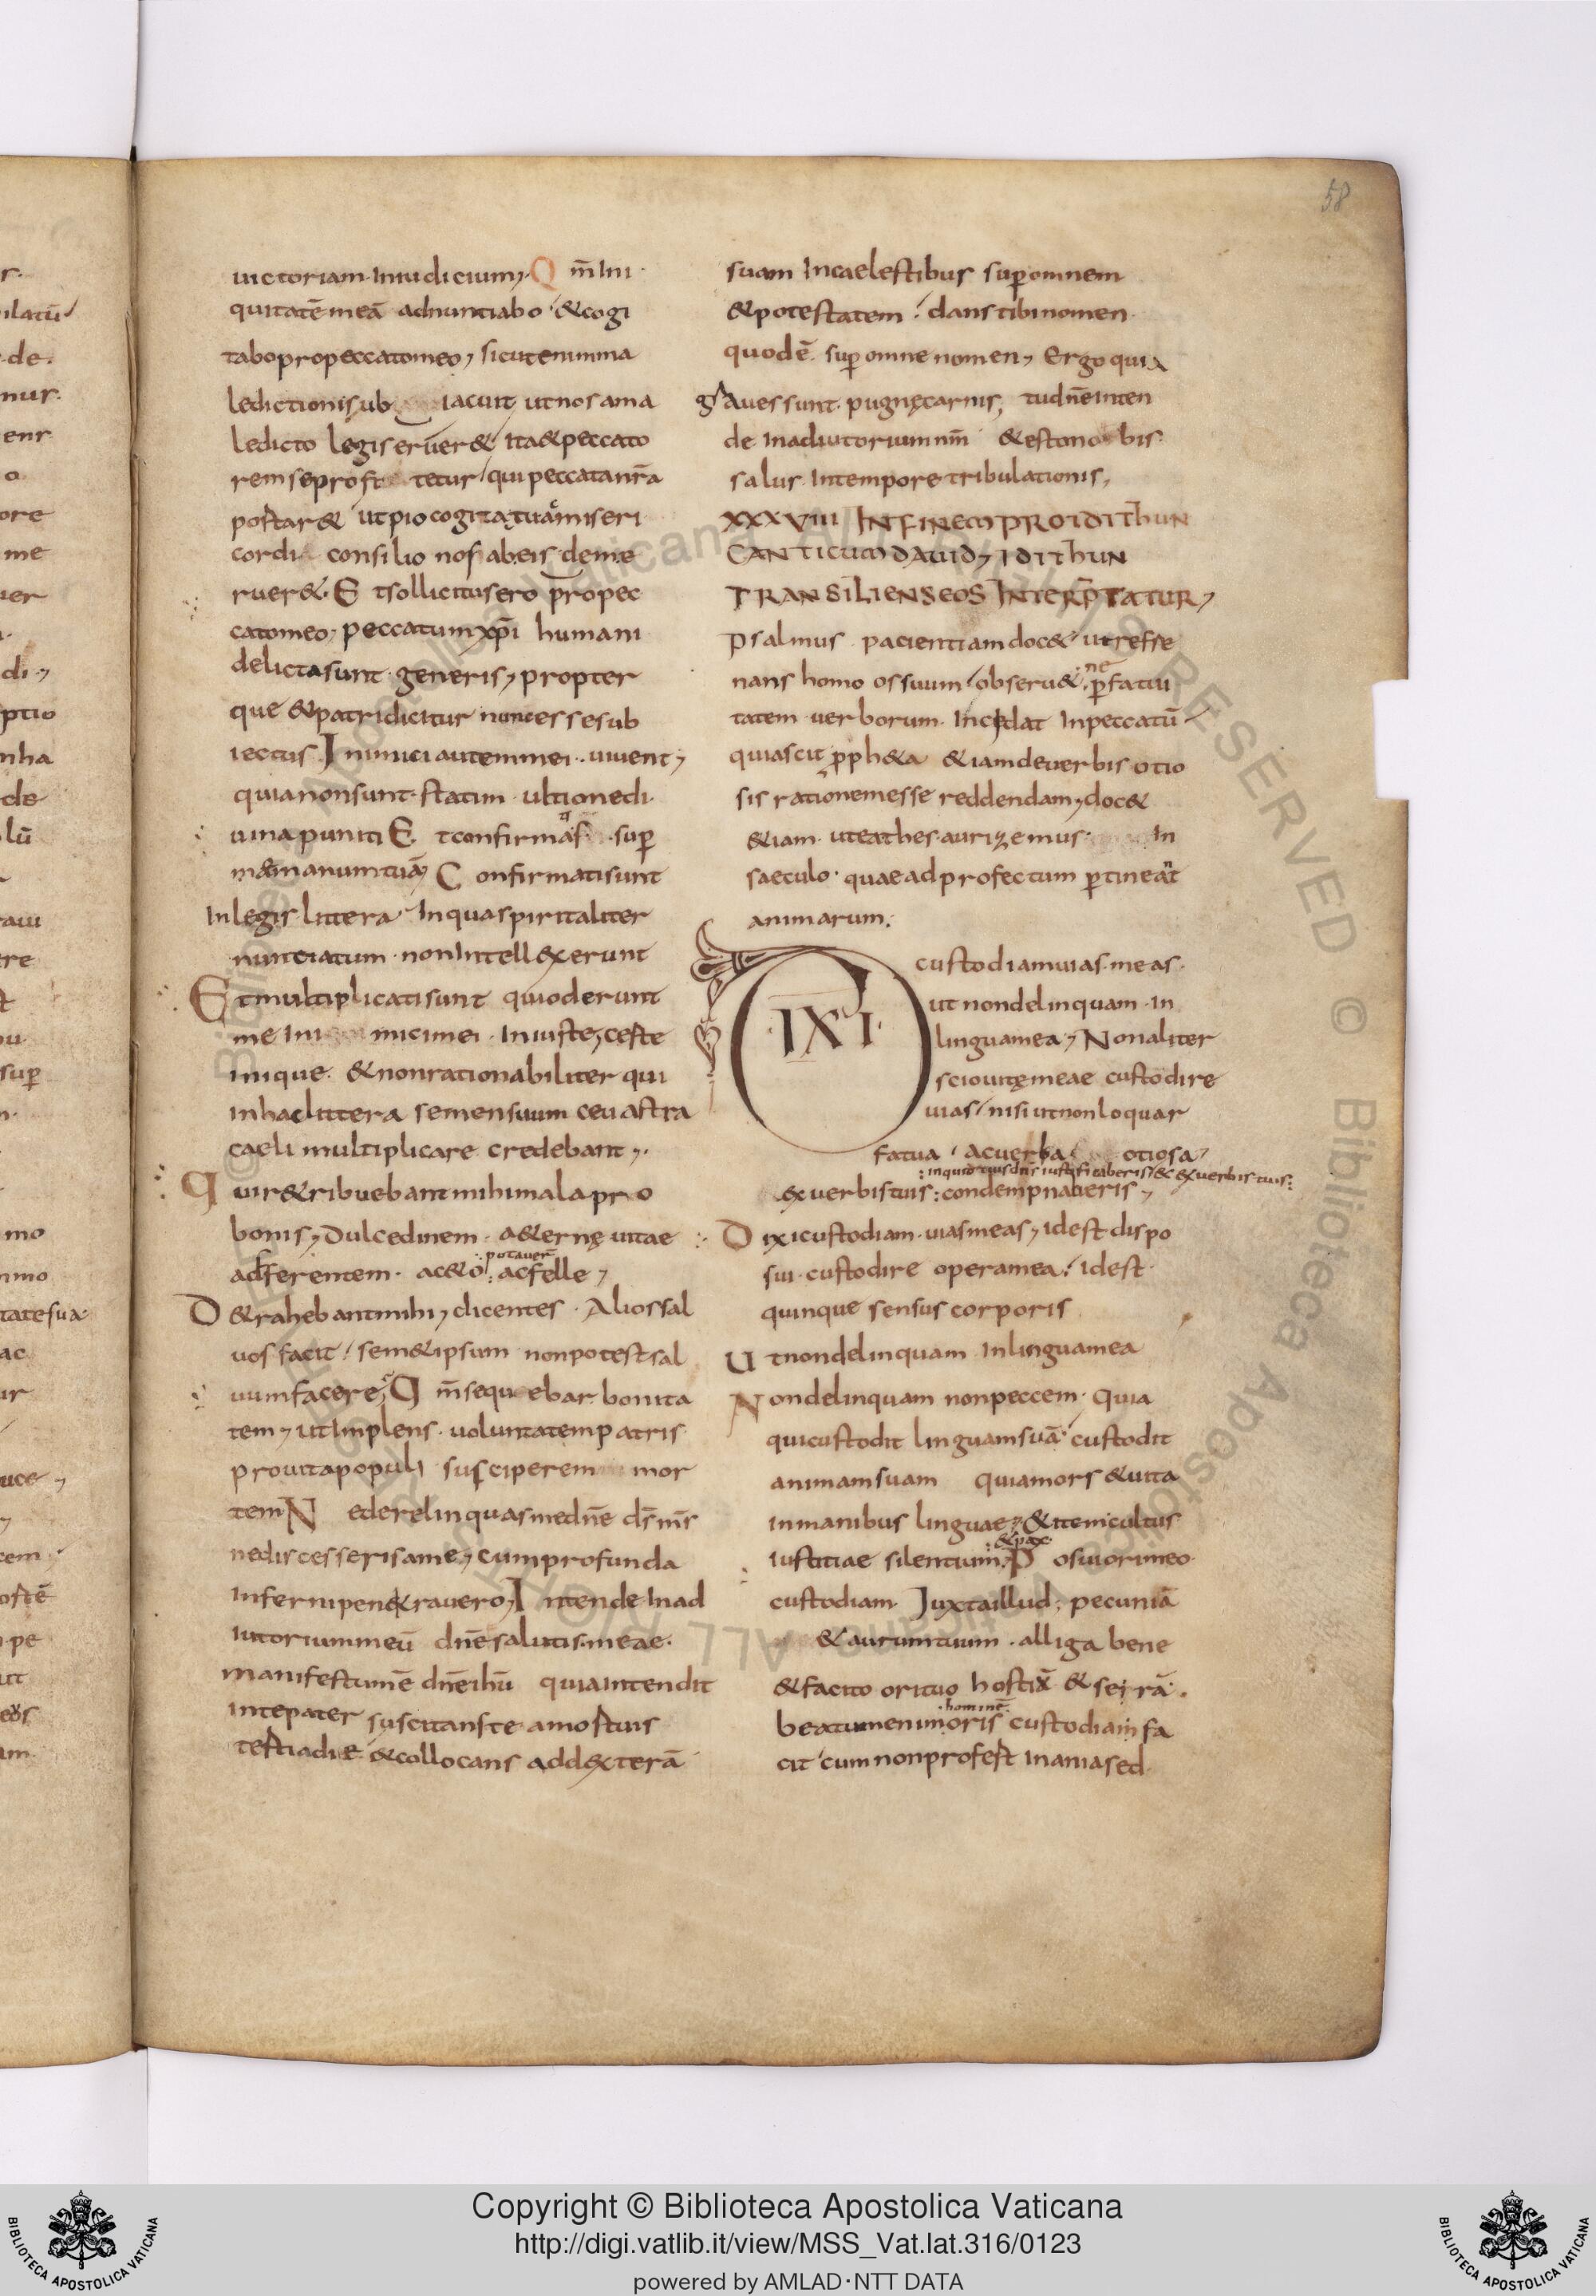 58
uictoriam. In iudicium; Qm̄ Ini
quitatē meā adnuntiabo. & cogi
tabo pro peccato meo; sicut enim ma
ledictioni sub iacuit ut nos a ma
ledicto legis eruer& ita & peccato
rem se profitetur qui peccata nr̄a
portar& ut pio cogitatu a miseri
cordi consilio nos ab eis deme
ruer&. Et sollicitus ero pro pec
cato meo; peccatum xp̄i humani
delicta sunt generis; propter
que & patri dicitur non esse sub
iectus Inimici autem mei. uiuent;
quia non sunt statim ultione di
uina puniti Et confirmati s sup
me manum tuā; Confirmati sunt
In legis littera In qua spiritaliter
nuntiatum non Intell&xerunt
Et multiplicati sunt qui oderunt
me Ini mici mei. Iniuste; ceste
inique. & non rationabiliter qui
in hac littera semen suum ceu astra
caeli multiplicare credebant;.
Qui r&ribuebant mihi mala pro
bonis; Dulcedinem a&ernę uitae
adferentem. ac&o ac felle;
potauer̄
D&rahebant mihi; dicentes. Alios sal
uos facit. sem&ipsum non potest sal
uum facere; Qm̄ sequebar bonita
tem; ut Implens uoluntatem patris
pro uita populi susciperem mor
tem Ne derelinquas me dn̄e ds̄ ms̄
ne discesseris a me; cum profunda
Inferni pen&rauero; Intende In ad
iutorium meū dn̄e salutis meae.
manifestum ē dn̄e ihū quia intendit
in te pater suscitans te a mortuis
tertia die & collocans ad d&xterā
suam In caelestibus sup omnem
& potestatem. dans tibi nomen
quod ē sup omne nomen; Ergo quia
graues sunt pugnę carnis, tu dn̄e inten
de In adiutorium nr̄m & esto nobis
salus In tempore tribulationis,
XXXVIII IN FINEM PRO IDITHUN
CANTICUM DAUID; IDITHUN
TRANSILIENS EOS INTERPTATUR;
Psalmus pacientiam doc& ut refre
nans homo os suum obseru& ne p fatui
tatem uerborum Incidat In peccatū
quia scit pph&a & iam de uerbis otio
sis rationem esse reddendam; doc&
& iam ut eathesaurizemus In
saeculo. quae ad profectum ptineant
animarum;
DIXI custodiam uias meas
ut non delinquam In
lingua mea; Non aliter
scio uitę meae custodire
uias nisi ut non loquar
fatua ac uerba otiosa
&x uerbis tuis: condempnaberis;
Dixi custodiam uias meas; id est dispo
sui custodire opera mea. id est
quinque sensus corporis
Ut non delinquam In lingua mea
Non delinquam non peccem. Quia
qui custodit linguam suā custodit
animam suam quia mors & uita
in manibus linguae; & item cultus
iustitiae silentium & pax Posui ori meo
custodiam Iuxta illud; pecuniā
& aurum tuum. alliga bene
& facito ori tuo hostiā & serrā.
beatum enim oris custodiam fa
hominē
cit cum non profest inania sed
Copyright © Biblioteca Apostolica Vaticana
http://digi.vatlib.it/view/MSS_Vat.lat.316/0123
powered by AMLAD·NTT DATA